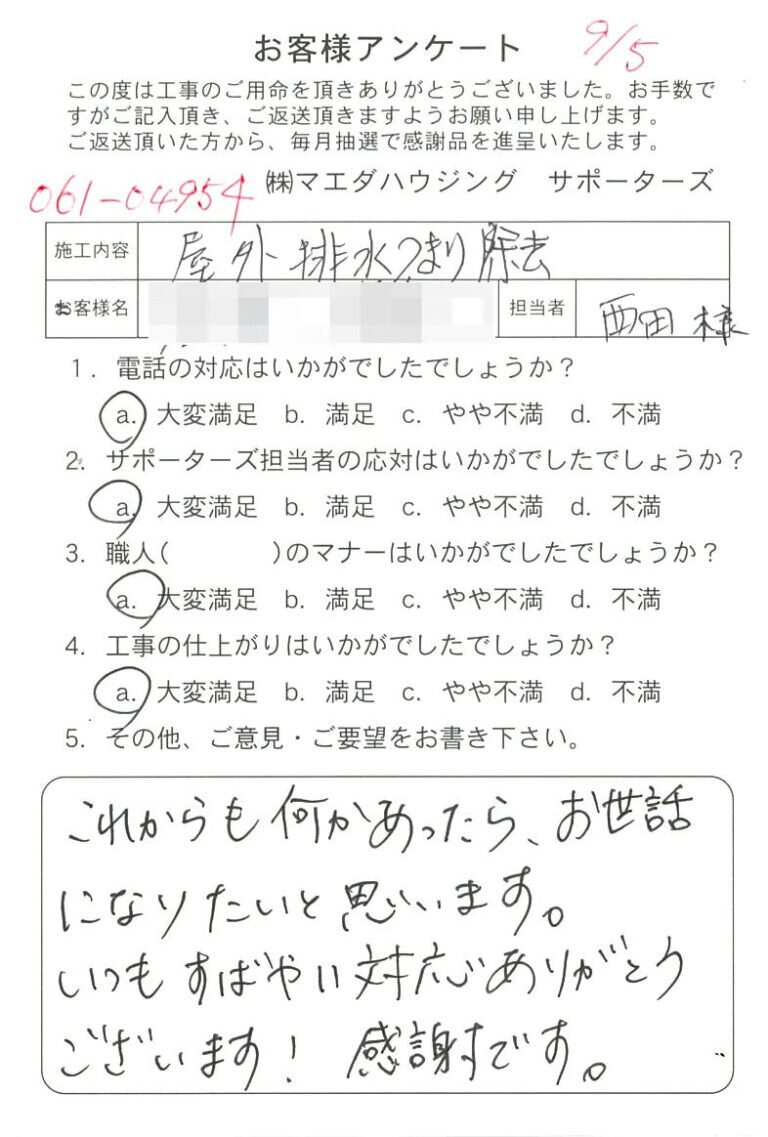 お客様アンケート 9/5
この度は工事のご用命を頂きありがとうございました。お手数で
すがご記入頂き、ご返送頂きますようお願い申し上げます。
ご返送頂いた方から、毎月抽選で感謝品を進呈いたします。
061-04954 ㈱マエダハウジング サポーターズ
施工内容 屋外排水つまり除去
お客様名 担当者 西田様
1. 電話の対応はいかがでしたでしょうか？
a. 大変満足 b. 満足 c. やや不満 d. 不満
2. サポーターズ担当者の応対はいかがでしたでしょうか？
a. 大変満足 b. 満足 c. やや不満 d. 不満
3. 職人( )のマナーはいかがでしたでしょうか？
a. 大変満足 b. 満足 c. やや不満 d. 不満
4. 工事の仕上がりはいかがでしたでしょうか？
a. 大変満足 b. 満足 c. やや不満 d. 不満
5. その他、ご意見・ご要望をお書き下さい。
これからも何かあったら、お世話
になりたいと思います。
いつもすばやい対応ありがとう
ございます！ 感謝です。